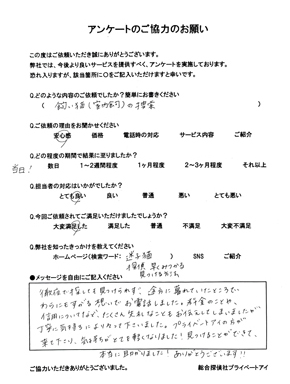 アンケートのご協力のお願い
この度はご依頼いただき誠にありがとうございます。
弊社では、今後より良いサービスを提供すべく、アンケートを実施しております。
恐れ入りますが、該当箇所に〇をご記入いただけますと幸いです。
Q.どのような内容のご依頼でしたか？簡単にお書きください
( 飼い猫(室内飼)の捜索 )
Q.ご依頼の理由をお聞かせください
安心感 価格 電話時の対応 サービス内容 ご紹介
Q.どの程度の期間で結果に至りましたか？
当日! 数日 1～2週間程度 1ヶ月程度 2～3ヶ月程度 それ以上
Q.担当者の対応はいかがでしたか？
とても良い 良い 普通 悪い とても悪い
Q.今回ご依頼されてご満足いただけましたでしょうか？
大変満足した 満足した 普通 不満足 大変不満足
Q.弊社を知ったきっかけを教えてください
ホームページ(検索ワード: 迷子猫 ) SNS ご紹介
探偵 早くみつかる
見つける方法
●メッセージを自由にご記入ください
徹夜で探しても見つけられず、途方に暮れていたところで
わらにもすがる想いでお電話しました。料金のことや、
信用についてなど、たくさん失礼なこともお伝えしてしまいましたが
丁寧に気持ちによりそって下さいました。プライベートアイの方が
来て下さり、気持ちがとても軽くなりました！見つけることができて、
本当に助かりました！ありがとうございます!!
ご協力いただきありがとうございました。 総合探偵社プライベートアイ